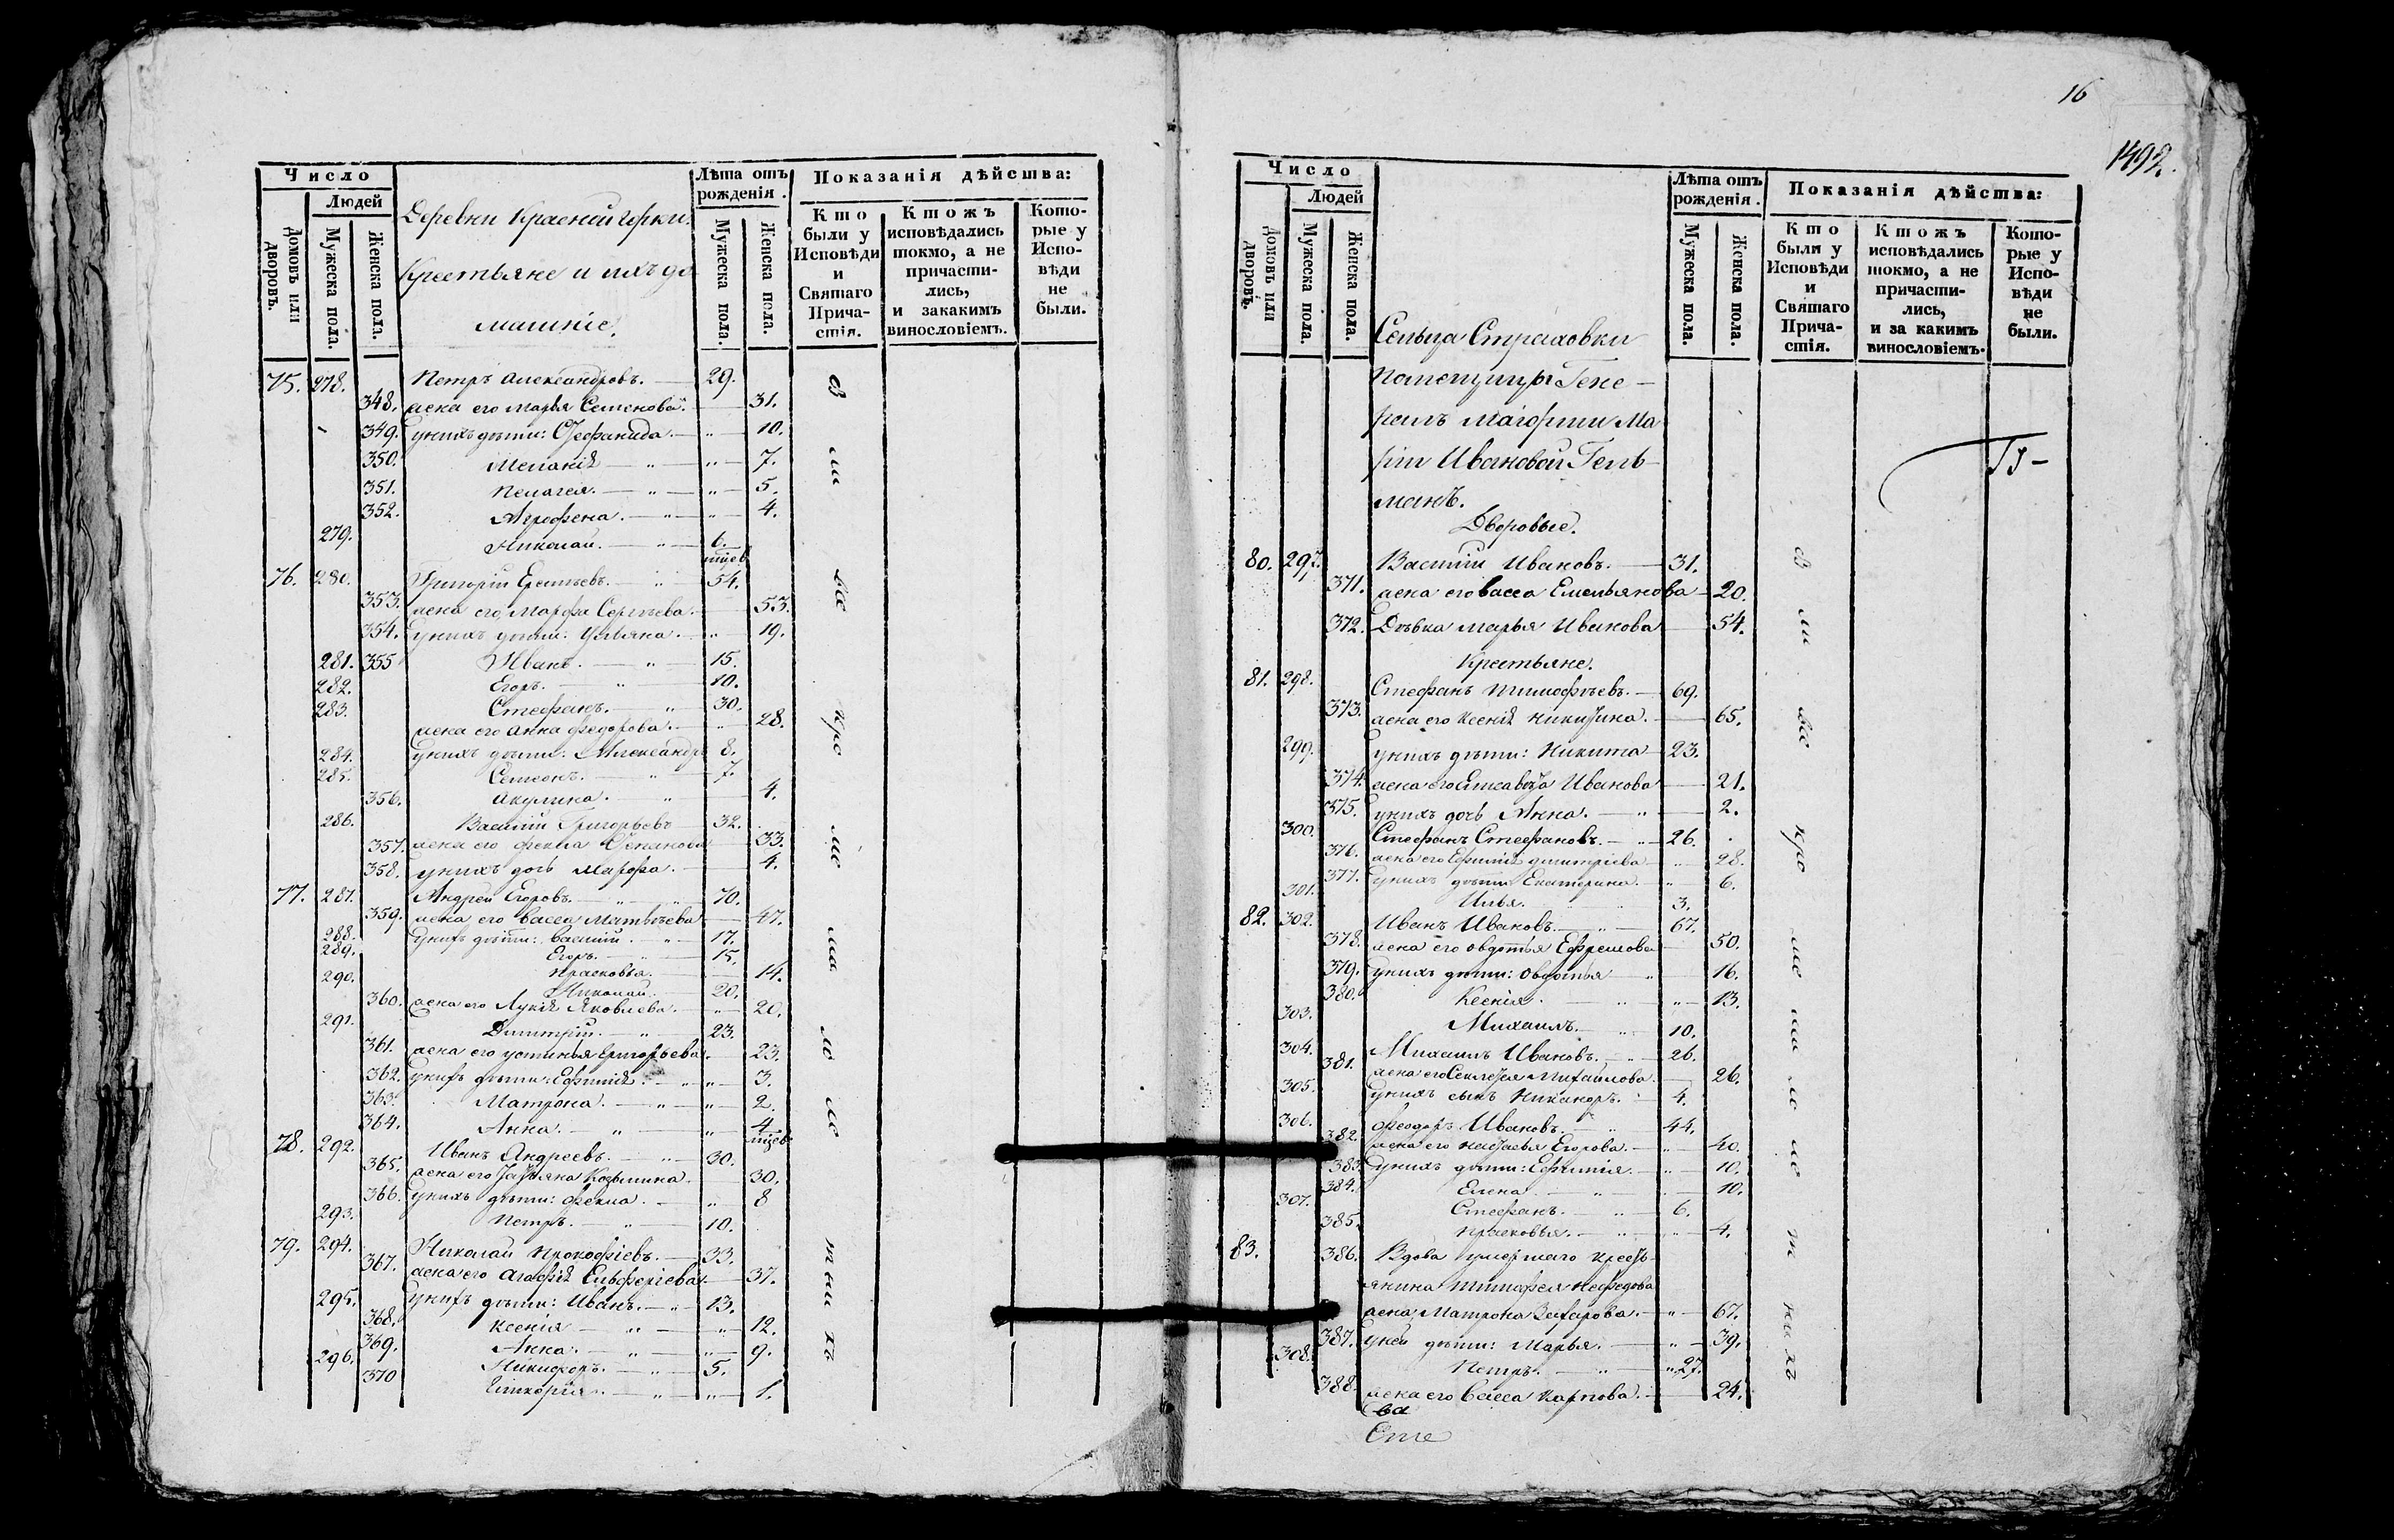 Число
Людей
Домовъ или дворовъ.
Мужеска пола.
Женска пола.
Деревни Красной горки.
Крестьяне и ихъ до
машніе.
Лѣта отъ рожденія.
Мужеска пола.
Женска пола.
Показанія дѣйства:
Кто были у Исповѣди и Святаго Причастія.
Ктожъ исповѣдались токмо, а не причастились, и закакимъ винословіемъ.
Которые у Исповѣди не были.
75. 278. Петръ Александровъ. 29.
348. жена его Марья Семенова. 31.
349. у нихъ дѣти: Феофанида. 10.
350. Меланія 7.
351. Пелагея. 5.
352. Агрофена. 4.
279. Николай. 6.
76. 280. Григорій 54.
353. жена его Марфа Сергѣева. 53.
354. у нихъ дѣти: Ульяна. 19.
281. 355 Иванъ. 15.
282. Егоръ. 10.
283. Стефанъ. 30.
жена его Анна Федорова. 28.
284. у нихъ дѣти: Александръ 8.
285. Семеонъ. 7.
356. Акулина. 4.
286. Василій Григорьевъ 32.
357. жена его Фекла 33.
358. у нихъ дочь Марфа. 4.
77. 287. Андрей Егоровъ. 70.
359. жена его Васса Матвѣева 47.
288. у нихъ дѣти: Василій. 17.
289. Егоръ. 15.
Прасковья. 14.
290. Николай. 20.
360. жена его Лукія Яковлева. 20.
291. Димитрій. 23.
361. жена его Устинья Григорьева. 23.
362. у нихъ дѣти: Ефимія. 3.
363. Матрона. 2.
364. Анна. 4
78. 292. Иванъ Андреевъ. 30.
365. жена его Татьяна Козьмина. 30.
366. у нихъ дѣти: Фекла. 8
293. Петръ. 10.
79. 294. Николай Прокофіевъ. 33.
367. жена его Агафія Елеферіева. 37.
295. у нихъ дѣти: Иванъ. 13.
368. Ксенія 12.
369. Анна. 9.
296. Никифоръ. 5.
370 Гликерія. 1.
16
1492.
Число
Людей
Домовъ или дворовъ.
Мужеска пола.
Женска пола.
Лѣта отъ рожденія.
Мужеска пола.
Женска пола.
Показанія дѣйства:
Кто были у Исповѣди и Святаго Причастія.
Ктожъ исповѣдались токмо, а не причастились, и за какимъ винословіемъ.
Которые у Исповѣди не были.
Сельца Страховки
Помещицы Гене-
ралъ Маіорши Ма
ріи Ивановой Гель-
манъ.
Дворовые.
80. 297. Василій Ивановъ. 31.
371. жена его Васса Емельянова 20.
372. Дѣвка Марья Иванова 54.
Крестьяне.
81. 298. Стефанъ Тимофѣевъ. 69.
373. жена его Ксенія Никитина. 65.
299. у нихъ дѣти: Никита 23.
374. жена его Елисавета Иванова 21.
375. у нихъ дочь Анна. 2.
300. Стефанъ Стефановъ. 26.
376. жена его Ефимія Димитріева 28.
377. у нихъ дѣти Екатерина. 6.
301. Илья. 3.
82. 302. Иванъ Ивановъ. 67.
378. жена его Овдотья Ефремова 50.
379. у нихъ дѣти: Овдотья 16.
380. Ксенія. 13.
303. Михаилъ. 10.
304. Михаилъ Ивановъ. 26.
381. жена его Секлетея Михайлова. 26.
305. у нихъ сынъ Никаноръ. 4.
306. Феодоръ Ивановъ. 44.
382. жена его Наталья Егорова. 40.
383. у нихъ дѣти: Ефимія. 10.
384. Елена. 10.
307. Стефанъ. 6.
385. Прасковья. 4.
83. 386. Вдова умершаго кресть-
янина Тимофея Нефедова
жена Матрона Захарова. 67.
387. у ней дѣти: Марья. 39.
308. Петръ. 27.
388. жена его Васса Карпова. 24.